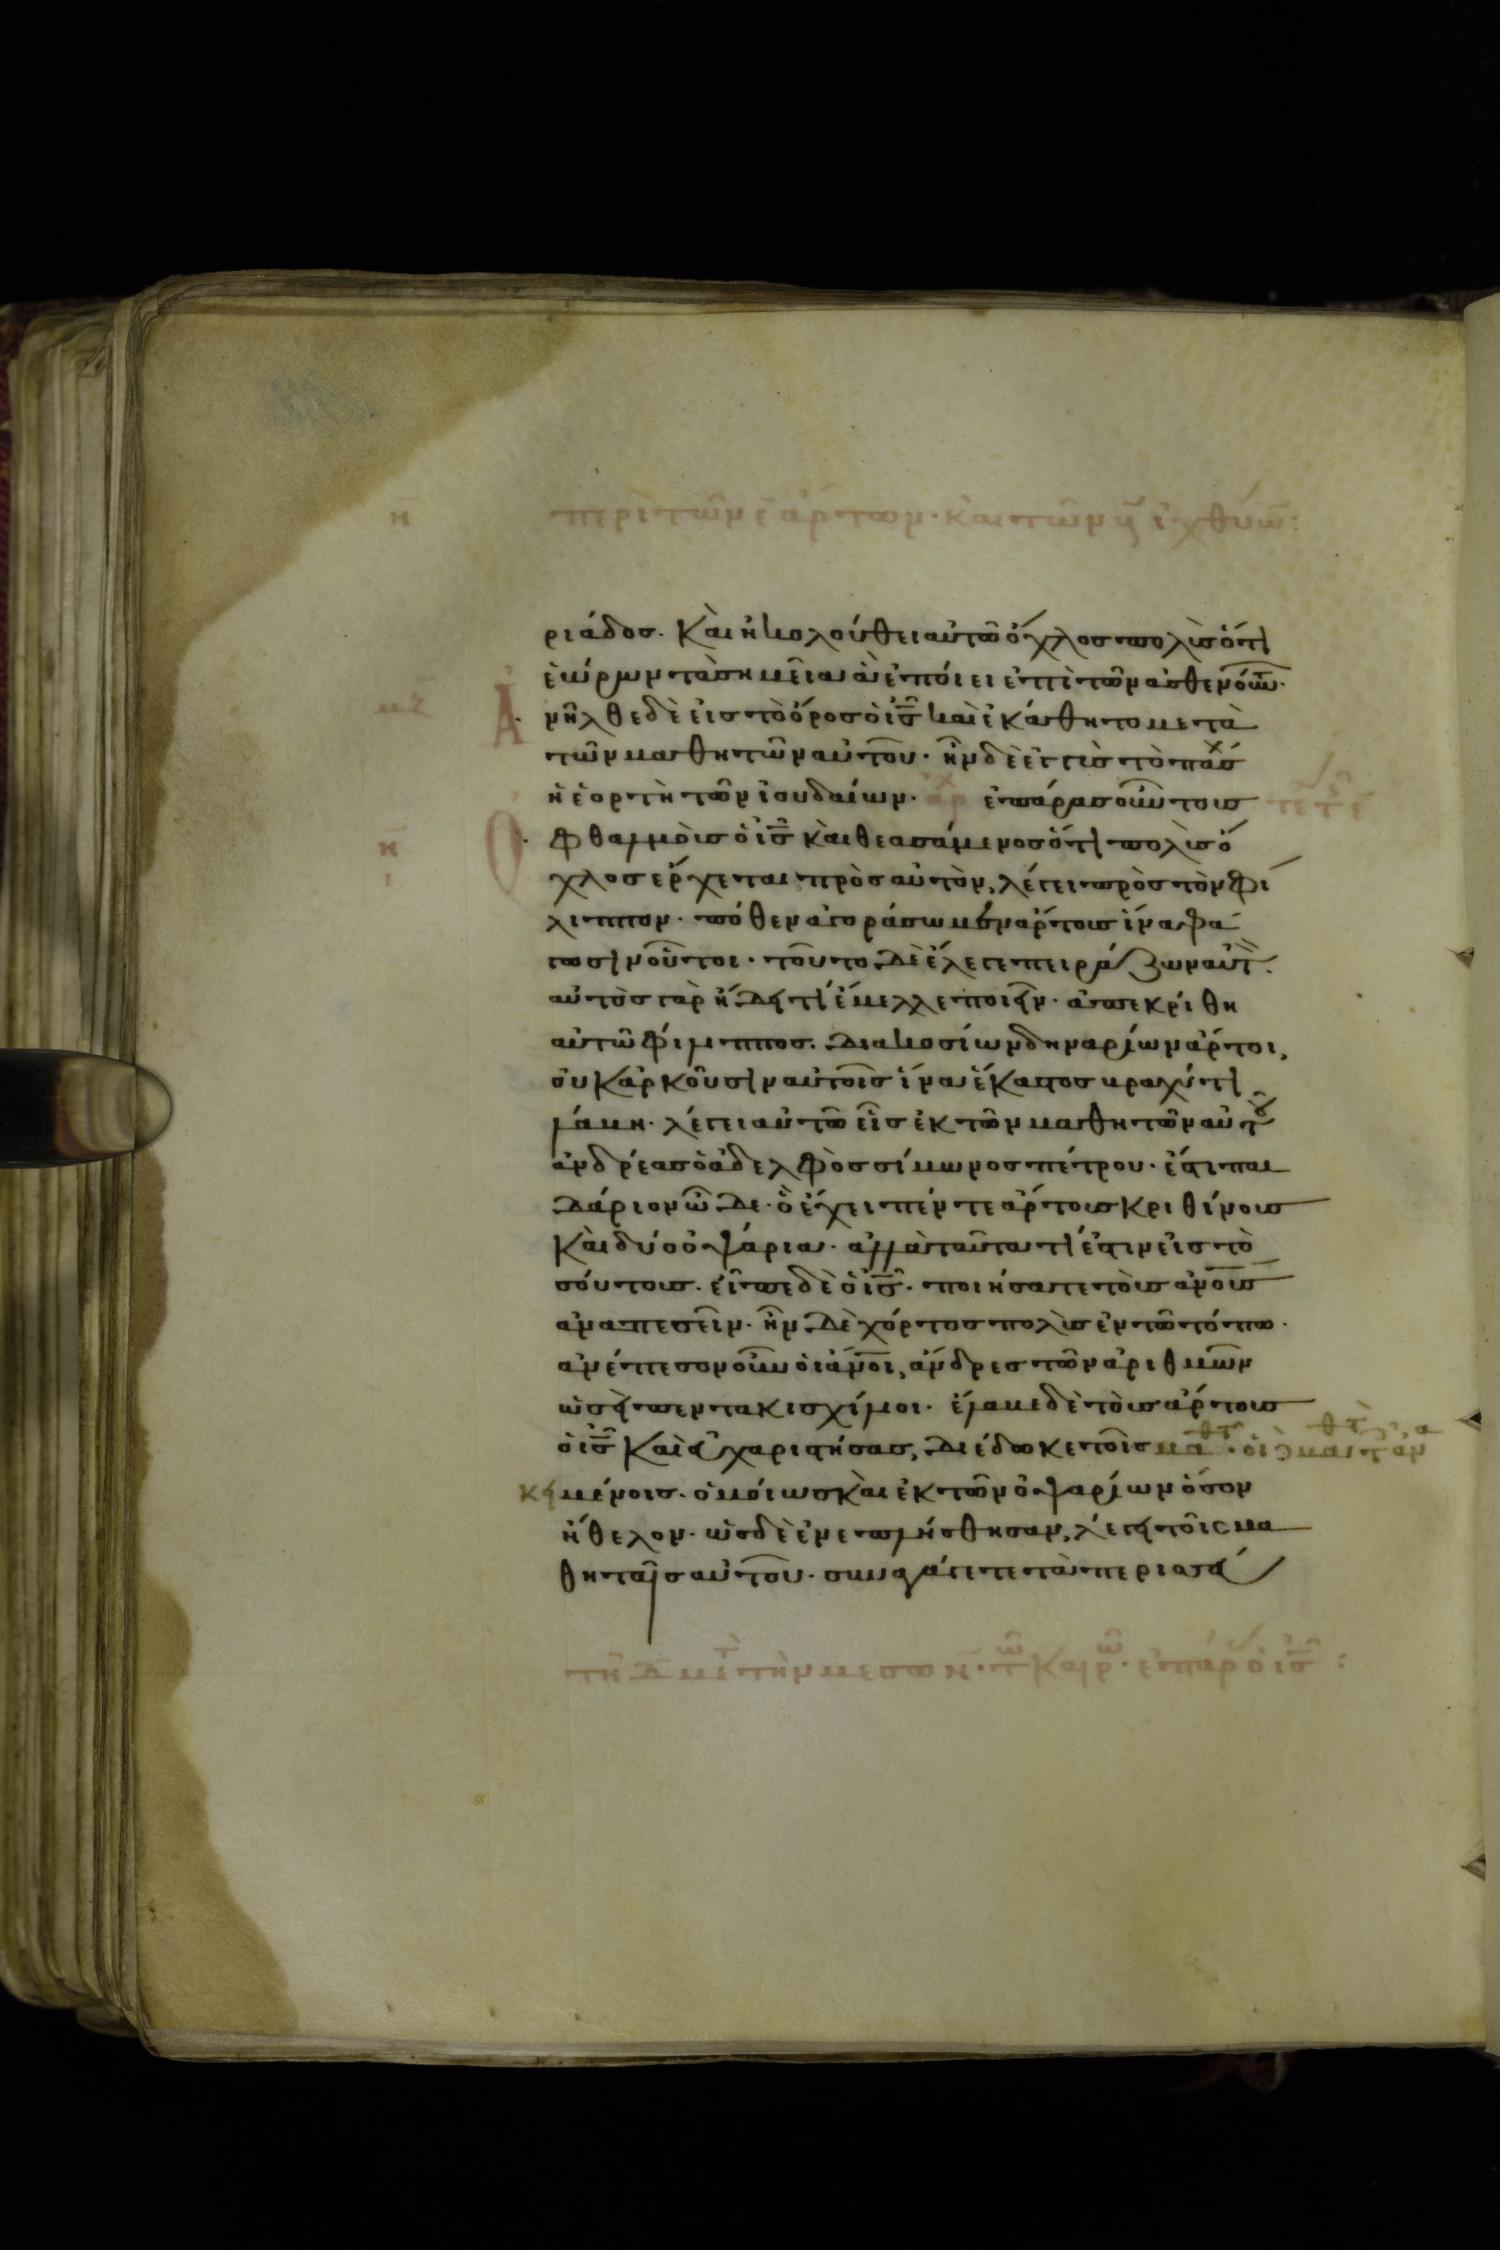 περὶ τῶν ε̄ ἄρτων· καὶ τῶν β̄ ἰχθύω̄:
ριάδος· καὶ ἠκολούθει αὐτῶ ὄχλος πολὺς ὅτι
ἑώρων τὰ σημεῖα ἃ ἐποίει ἐπὶ τῶν ἀσθενούντων·
Ἀνῆλθε δὲ εἰς τὸ ὄρος ὁ ι̅ς̅ καὶ ἐκάθητο μετὰ
τῶν μαθητῶν αὐτοῦ· ἦν δὲ ἐγγὺς τὸ πάσχα
ἡ ἑορτὴ τῶν ἰουδαίων· ἐπάρας οὖν τους
Ὀφθαλμοὺς ὁ ι̅ς̅ καὶ θεασάμενος ὅτι πολὺς ὄ
χλος ἔρχεται πρὸς αὐτὸν, λέγει πρὸς τὸν φί
λιππον· πόθεν ἀγοράσωμεν ἄρτους ἵνα φά
γωσιν οὗτοι· τοῦτο δὲ ἔλεγε πειράζων αὐτὸν·
αὐτὸς γὰρ ἤδει τί ἔμελλε ποιεῖν· ἀπεκρίθη
αὐτῶ φίλιππος· διακοσίων δηναρίων ἄρτοι,
οὐκ ἀρκοῦσιν αὐτοῖς ἵνα ἕκαστος βραχύ τι
λάβη· λέγει αὐτῶ εἷς ἐκ τῶν μαθητῶν αὐτοῦ
ἀνδρέας ὁ ἀδελφὸς σίμωνος πέτρου· ἔστι παι
δάριον ὧδε· ὃ ἔχει πέντε ἄρτους κριθίνους
καὶ δύο ὀψάρια· ἀλλὰ ταῦτα τί ἐστιν εἰς το
σούτους· εἶπε δὲ ὁ ι̅ς̅· ποιήσατε τοὺς ἀνους
ἀναπεσεῖν· ἦν δὲ χόρτος πολὺς ἐν τῶ τόπω·
ἀνέπεσον οὖν οἱ ἄνοι, ἄνδρες τὸν ἀριθμὸν
ὡσεὶ πεντακισχίλιοι· ἔλαβε δὲ τοὺς ἄρτους
ὁ ι̅ς̅ καὶ εὐχαριστήσας, διέδωκε τοῖς μαθτ· οἱ δὲ μαθτ τοῖς ἀνα
κειμένοις· ὁμοίως καὶ ἐκ τῶν ὀψαρίων ὅσον
ἤθελον· ὡς δὲ ἐνεπλήσθησαν, λέγει τοῖς μα
θηταῖς αὐτοῦ· συναγάγετε τὰ περισσεύ